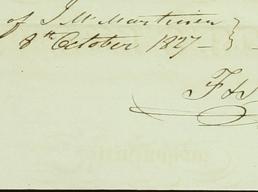 of J. M. Martinson
8th October 1827 -
F